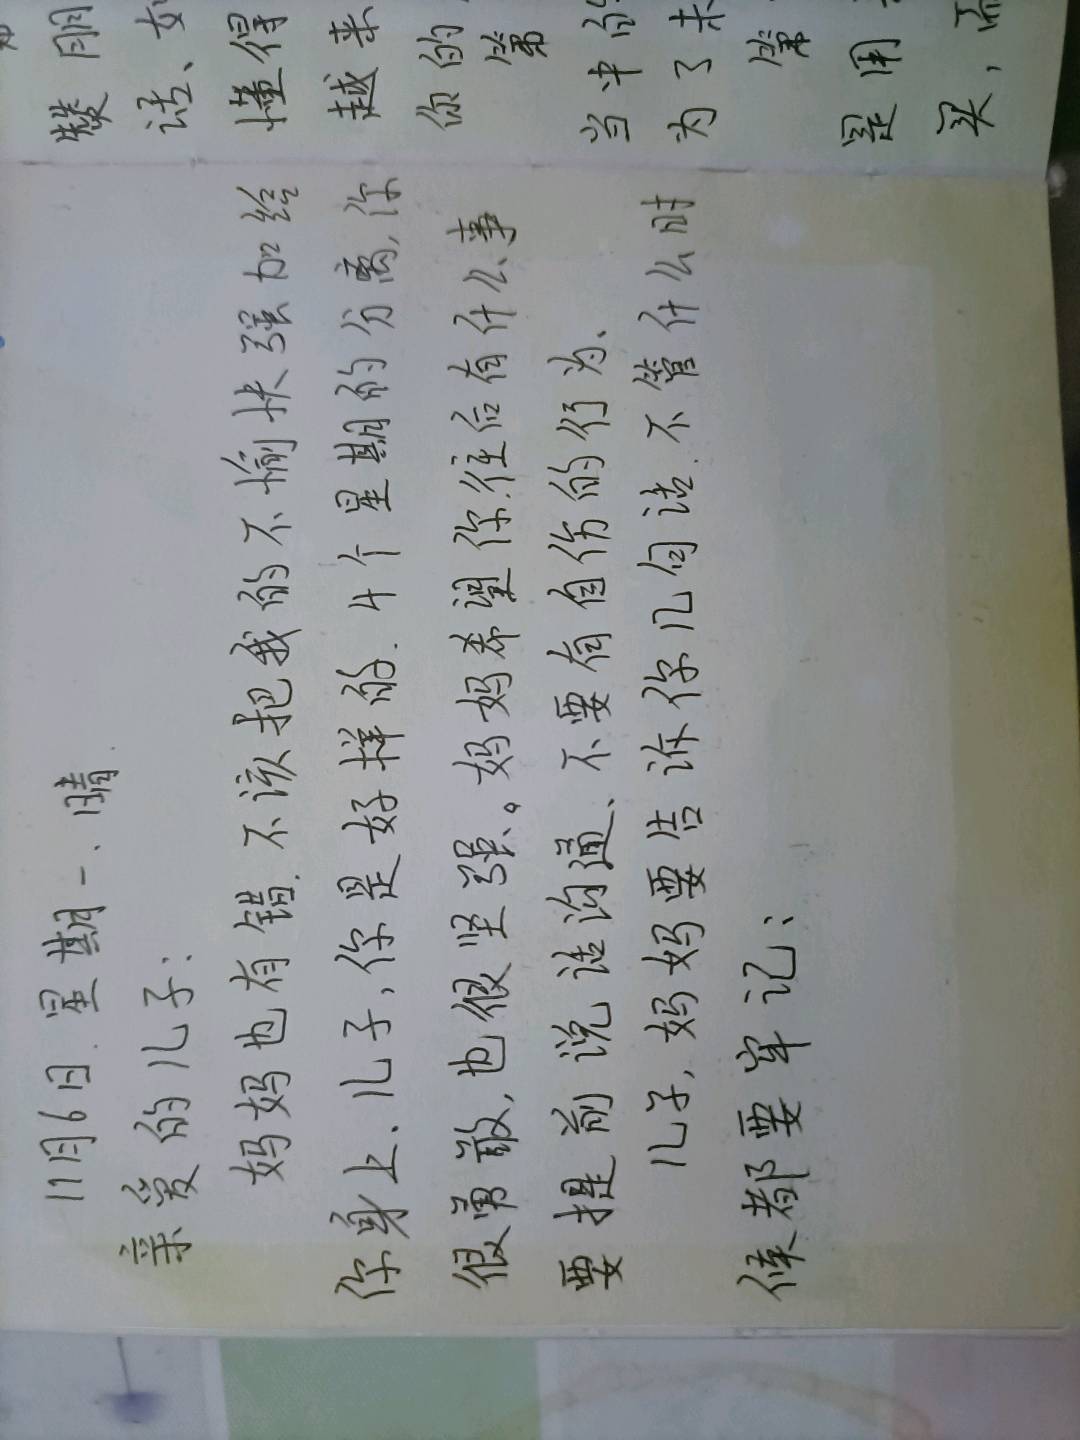 11月6日.星期一、晴.
亲爱的儿子：
妈妈也有错.不该把我的不愉快强加给
你身上、儿子，你是好样的.4个星期的分离,你
很勇敢,也很坚强、。妈妈希望你往后有什么事
要提前说话沟通、不要有自伤的行为、
儿子,妈妈要告诉你几句话.不管什么时
候都要牢记：
朋
话、如
懂得
越来
你的
第
当中的
为了未
第
是用
买，而